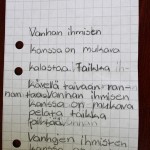 Vanhan ihmisen
kanssa on mukava
kalastaa. Taikka
kävellä taivaan ran-
nan taa. Vanhan ihmisen
kanssa on mukava
pelata taikka
Vanhojen ihmisten
kanssa on